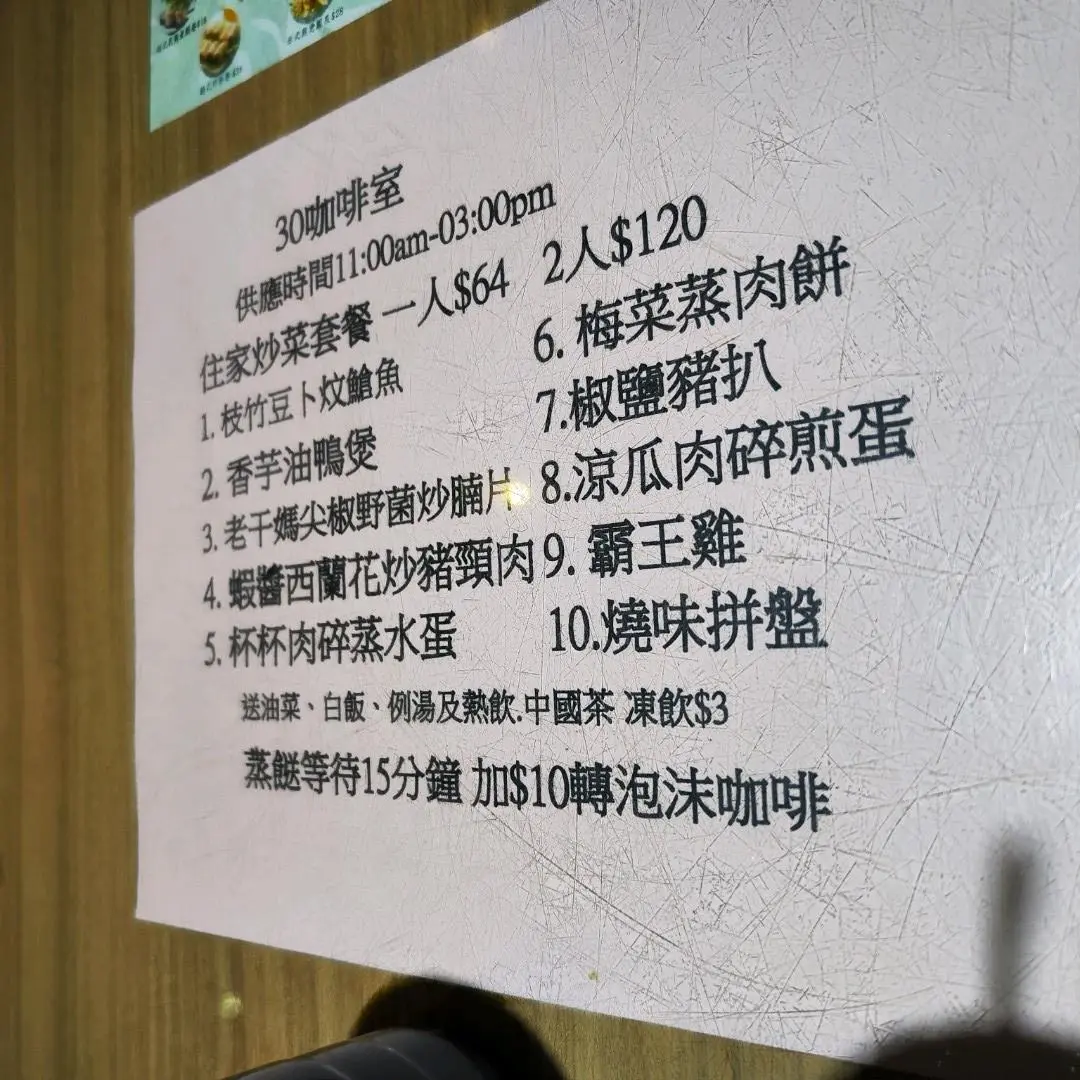 30咖啡室
供應時間11:00am-03:00pm
住家炒菜套餐 一人$64 2人$120
1. 枝竹豆卜炆鯧魚
2. 香芋油鴨煲
3. 老干媽尖椒野菌炒腩片
4. 蝦醬西蘭花炒豬頸肉
5. 杯杯肉碎蒸水蛋
6. 梅菜蒸肉餅
7.椒鹽豬扒
8.涼瓜肉碎煎蛋
9. 霸王雞
10.燒味拼盤
送油菜、白飯、例湯及熱飲.中國茶 凍飲$3
蒸餸等待15分鐘 加$10轉泡沫咖啡